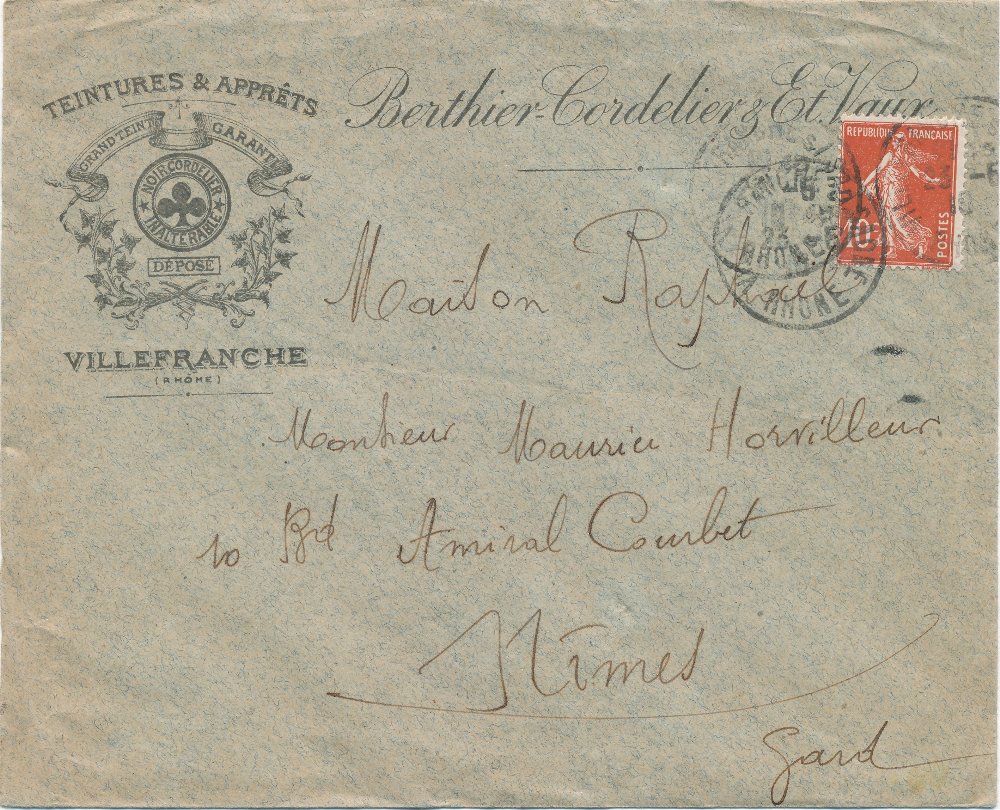 TEINTURES & APPRÊTS
Berthier-Cordelier & Et. Vaux
GRAND TEINT GARANTI
NOIR CORDELIER
INALTÉRABLE
DÉPOSÉ
VILLEFRANCHE
(RHÔNE)
RÉPUBLIQUE FRANÇAISE
10
POSTES
RHONE
Maison Raphael
Monsieur Maurice Horvilleur
10 Bd Amiral Courbet
Nîmes
Gard